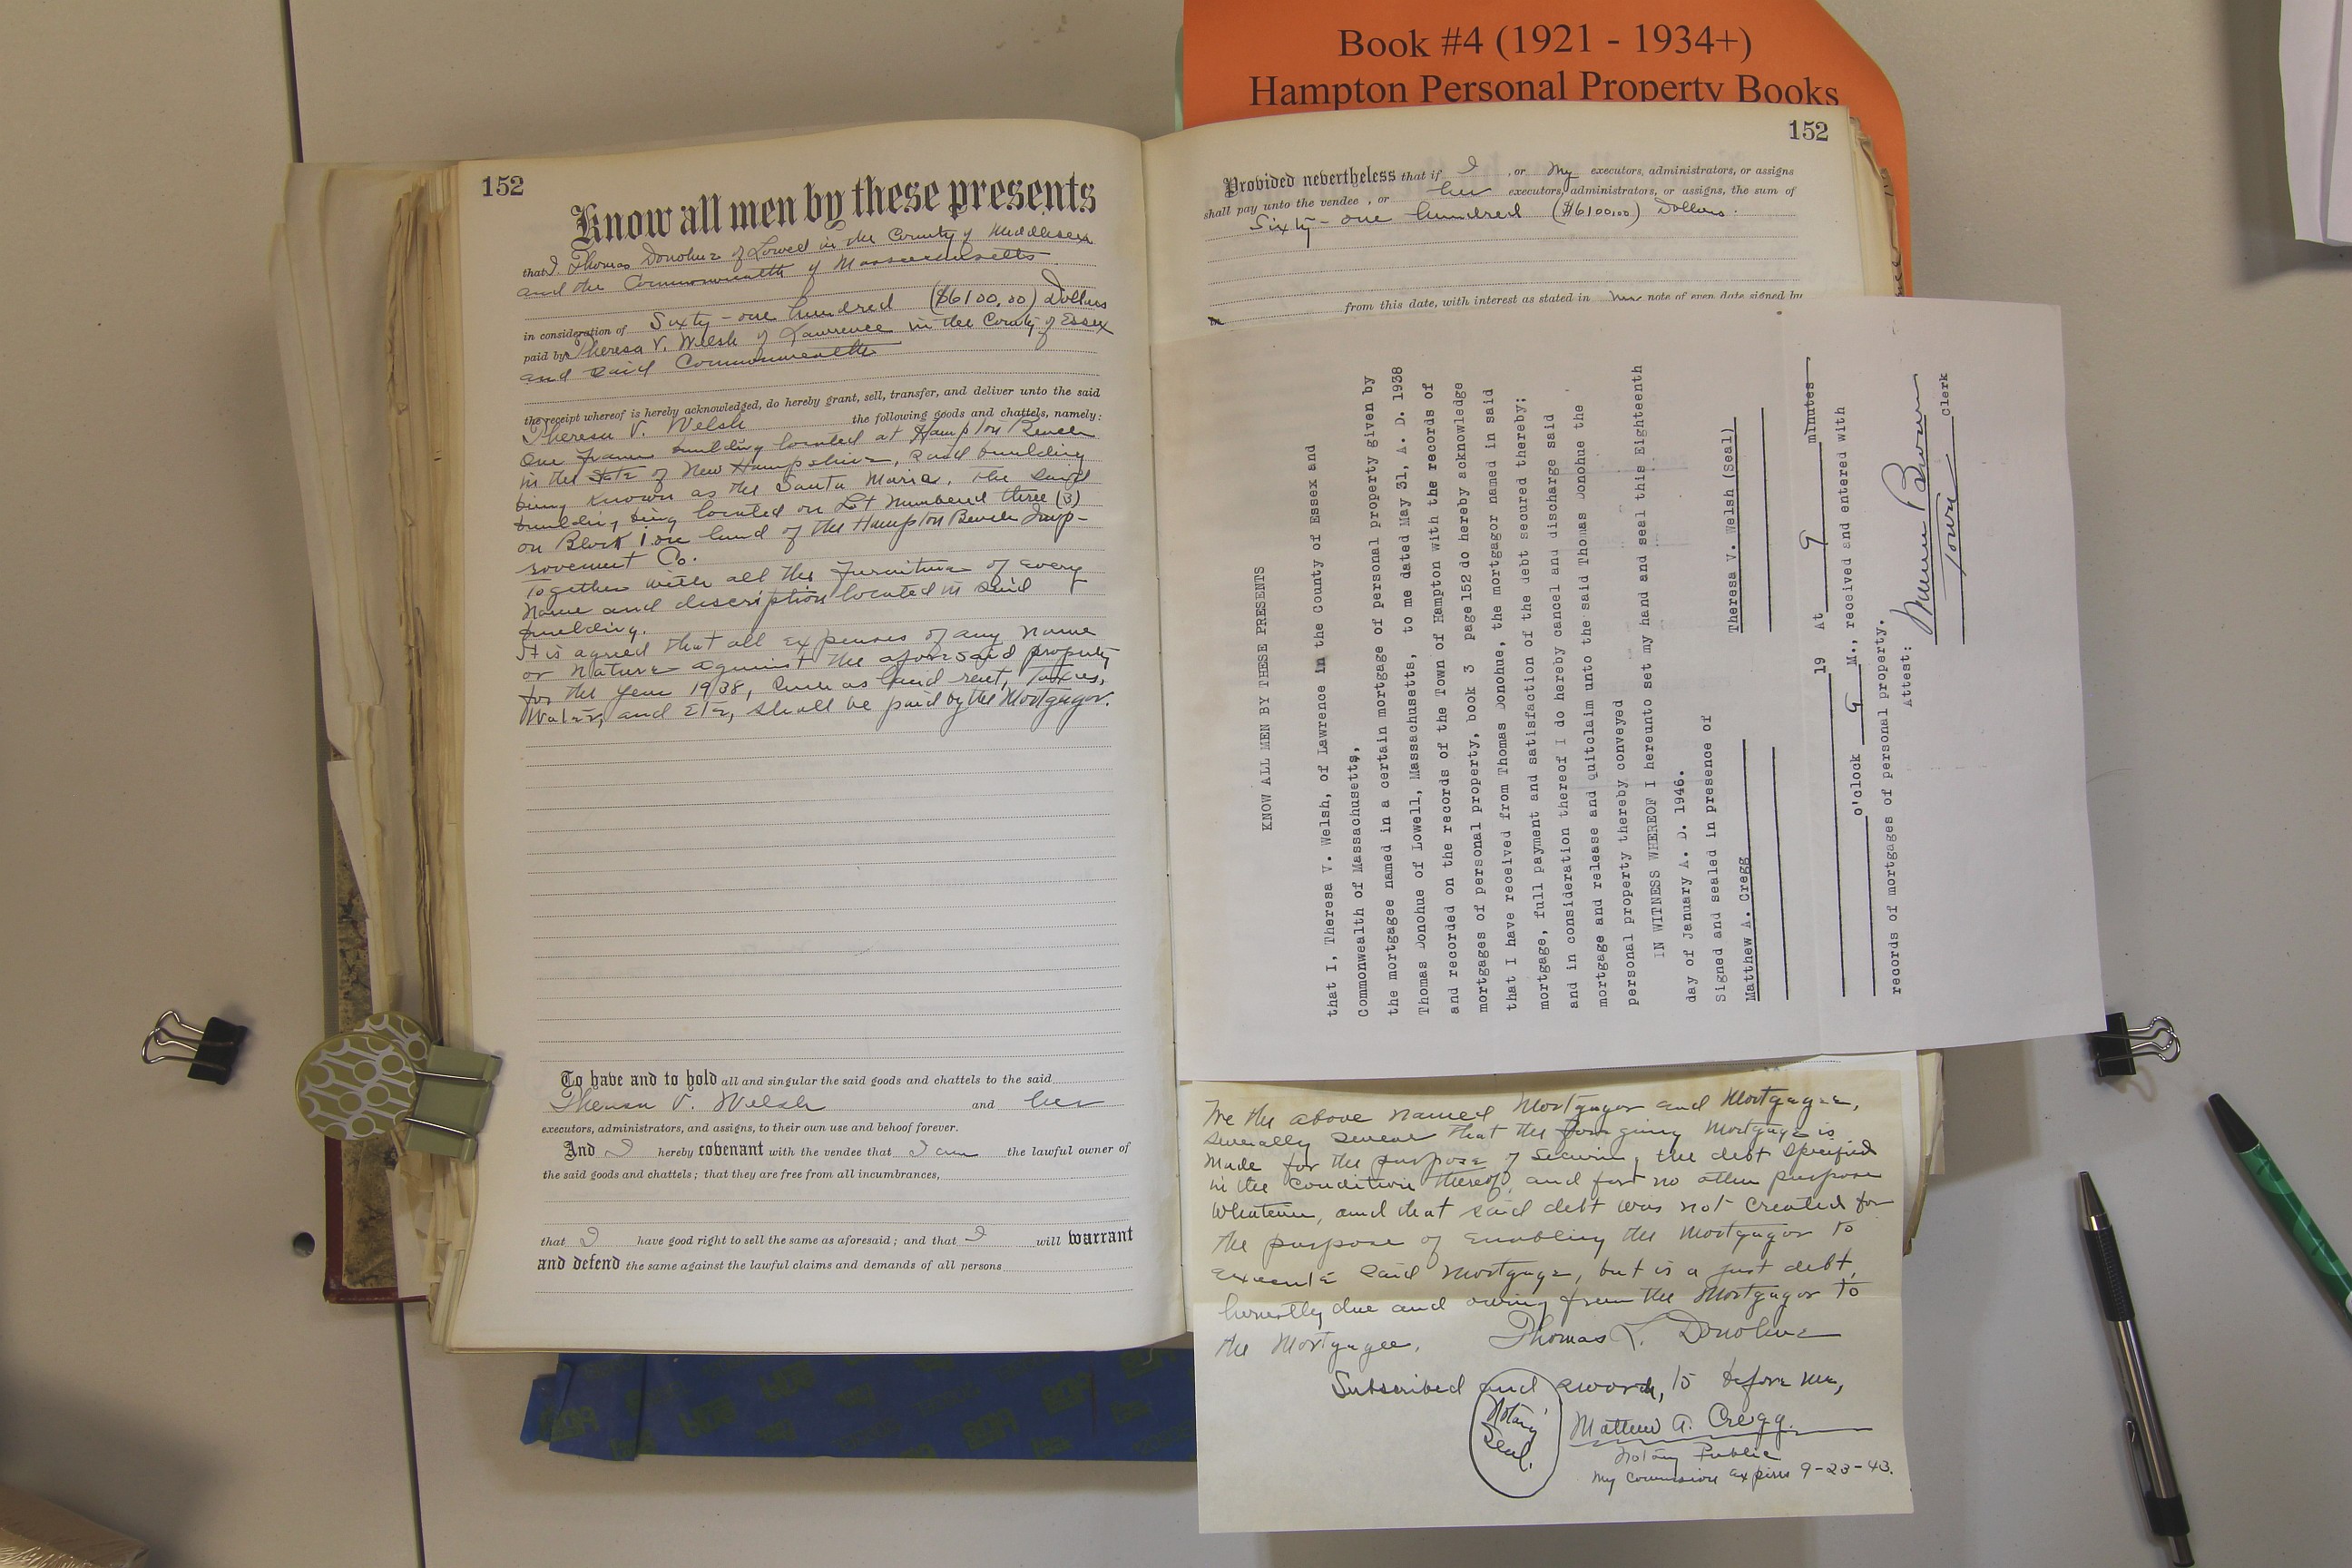 Book #4 (1921 - 1934+)
Hampton Personal Property Books
152
Know all men by these presents
that I, Thomas Donohue of Lowell in the County of Middlesex
and the Commonwealth of Massachusetts
in consideration of Sixty-one hundred ($6100.00) Dollars
paid by Theresa V. Welsh of Lawrence in the County of Essex
and said Commonwealth
the receipt whereof is hereby acknowledged, do hereby grant, sell, transfer, and deliver unto the said
Theresa V. Welsh the following goods and chattels, namely:
One frame building located at Hampton Beach
in the State of New Hampshire, said building
being known as the Santa Maria, the said
building being located on Lot Numbered three (3)
on Block 1 on land of the Hampton Beach Imp-
rovement Co.
Together with all the furniture of every
Name and description located in said
building.
It is agreed that all expenses of any name
or nature against the aforesaid property
for the year 1938, such as land rent, Taxes,
Water, and Etc, shall be paid by the Mortgagor.
To have and to hold all and singular the said goods and chattels to the said
Theresa V. Welsh and her
executors, administrators, and assigns, to their own use and behoof forever.
And I hereby covenant with the vendee that I am the lawful owner of
the said goods and chattels; that they are free from all incumbrances,
that I have good right to sell the same as aforesaid; and that I will warrant
and defend the same against the lawful claims and demands of all persons
152
Provided nevertheless that if I, or My executors, administrators, or assigns
shall pay unto the vendee, or her executors, administrators, or assigns, the sum of
Sixty-one hundred ($6100.00) Dollars.
in
from this date, with interest as stated in note of even date signed by
KNOW ALL MEN BY THESE PRESENTS
that I, Theresa V. Welsh, of Lawrence in the County of Essex and
Commonwealth of Massachusetts,
the mortgagee named in a certain mortgage of personal property given by
Thomas Donohue of Lowell, Massachusetts, to me dated May 31, A. D. 1938
and recorded on the records of the Town of Hampton with the records of
mortgages of personal property, book 3 page 152 do hereby acknowledge
that I have received from Thomas Donohue, the mortgagor named in said
mortgage, full payment and satisfaction of the debt secured thereby;
and in consideration thereof I do hereby cancel and discharge said
mortgage and release and quitclaim unto the said Thomas Donohue the
personal property thereby conveyed
IN WITNESS WHEREOF I hereunto set my hand and seal this Eighteenth
day of January A. D. 1946.
Signed and sealed in presence of
Matthew A. Cregg Theresa V. Welsh (Seal)
19 At 9 minutes
o'clock M., received and entered with
records of mortgages of personal property.
Attest:
Brown
Town Clerk
We the above named Mortgagor and Mortgagee,
severally swear that the foregoing Mortgage is
made for the purpose of securing the debt specified
in the condition thereof, and for no other purpose
whatever, and that said debt was not created for
the purpose of enabling the Mortgagor to
execute said Mortgage, but is a just debt,
honestly due and owing from the Mortgagor to
the Mortgagee. Thomas L. Donohue
Subscribed and sworn to before me,
Notary
Seal.
Matthew A. Cregg.
Notary Public
My Commission expires 9-23-43.